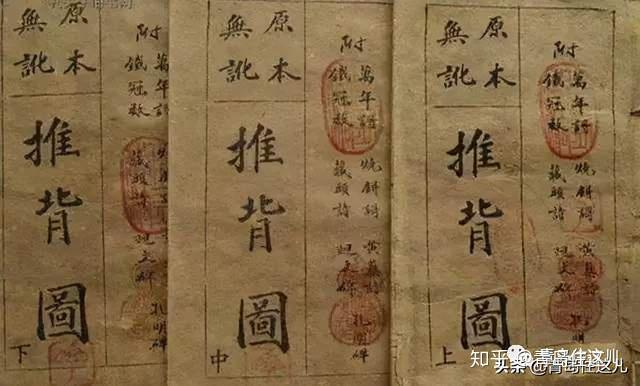 附
萬年謌 燒餅謌 黃蘗詩
鐵冠數 藏頭詩 廻文碑
原本
無訛
推背圖
上
附
萬年謌 燒餅謌 黃蘗詩 孔明碑
鐵冠數 藏頭詩 廻文碑
原本
無訛
推背圖
中
附
萬年謌 孔明碑
鐵冠數 藏頭詩 廻文碑
原本
無訛
推背圖
下
知乎 @青岛住这儿
头条 @青岛住这儿